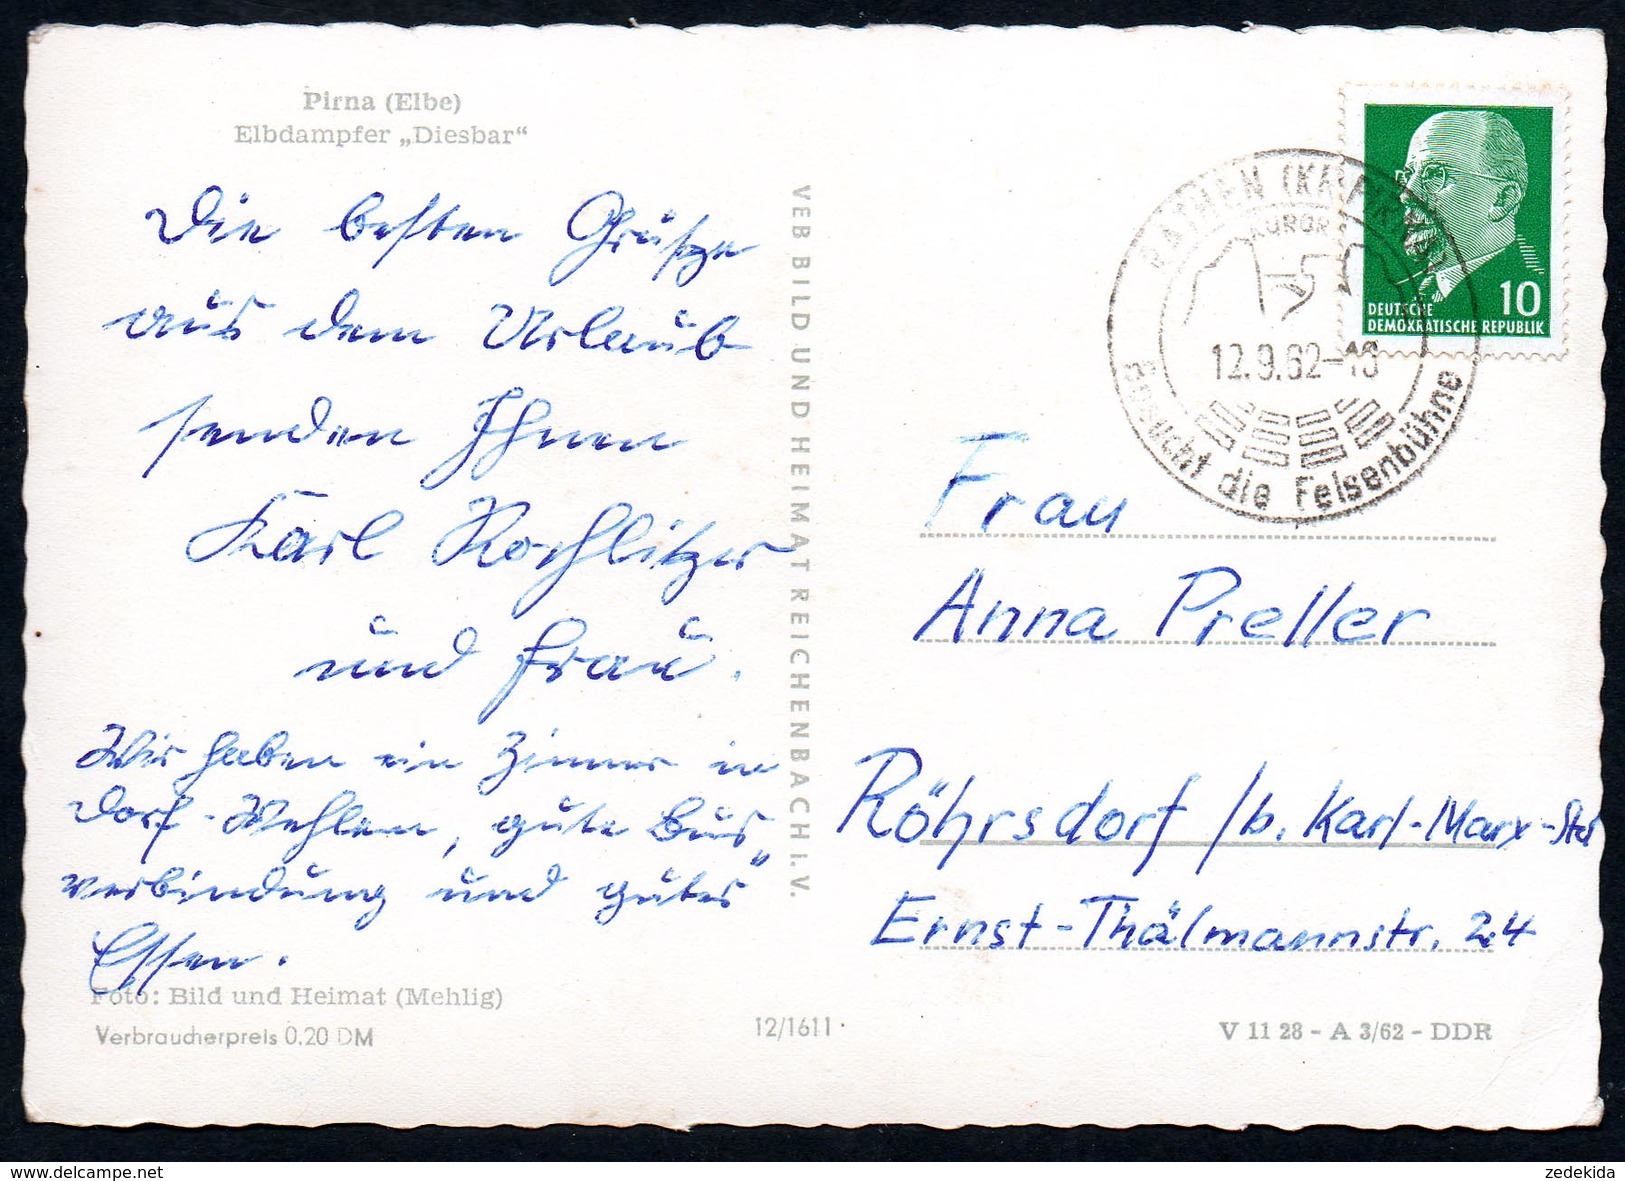 Pirna (Elbe)
Elbdampfer „Diesbar“
Die besten Grüße
aus dem Urlaub
senden Ihnen
Karl Rochlitzer
und Frau.
Wir haben ein Zimmer in
Dorf-Wehlen, gute Bus"
verbindung und gutes
Essen.
Foto: Bild und Heimat (Mehlig)
Verbraucherpreis 0,20 DM
VEB BILD UND HEIMAT REICHENBACH I. V.
12/1611
DEUTSCHE
DEMOKRATISCHE REPUBLIK
10
RATHEN (KR PIRNA)
KURORT
12.9.62-18
Besucht die Felsenbühne
Frau
Anna Preller
Röhrsdorf /b. Karl-Marx-Stadt
Ernst-Thälmannstr. 24
V 11 28 - A 3/62 - DDR
zedekida